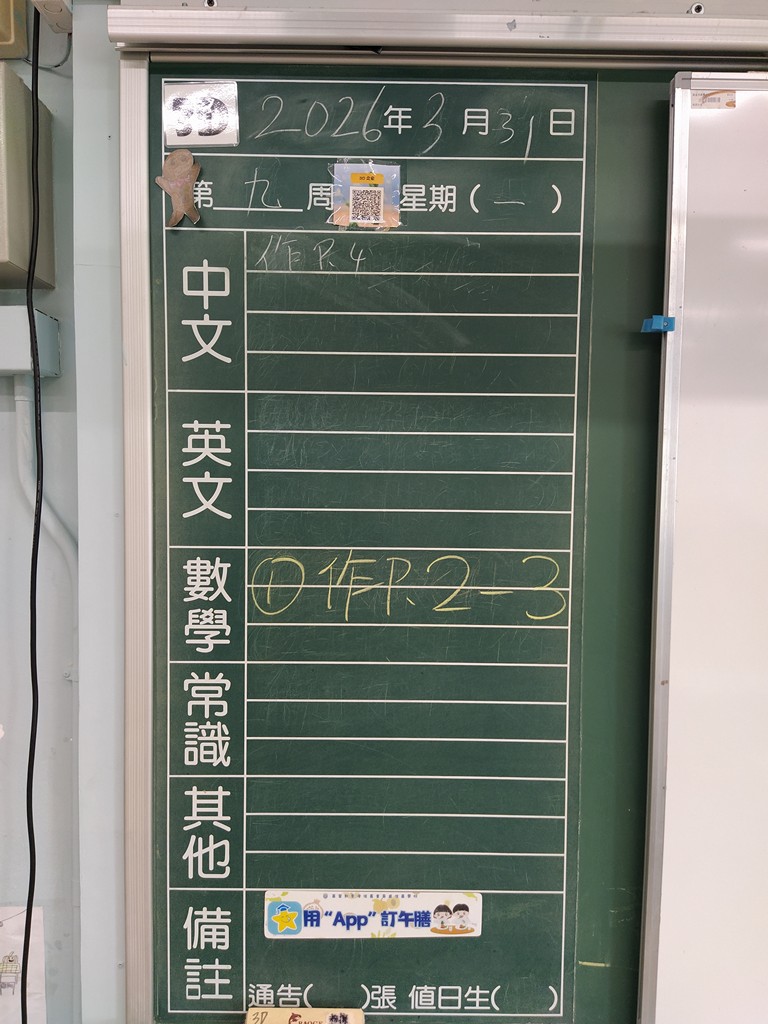 3D 2026年3月31日
第九周 星期(一)
中文
作 P.4
英文
數學
① 作 P.2-3
常識
其他
備註
用“App”訂午膳
通告( )張 值日生( )
3D